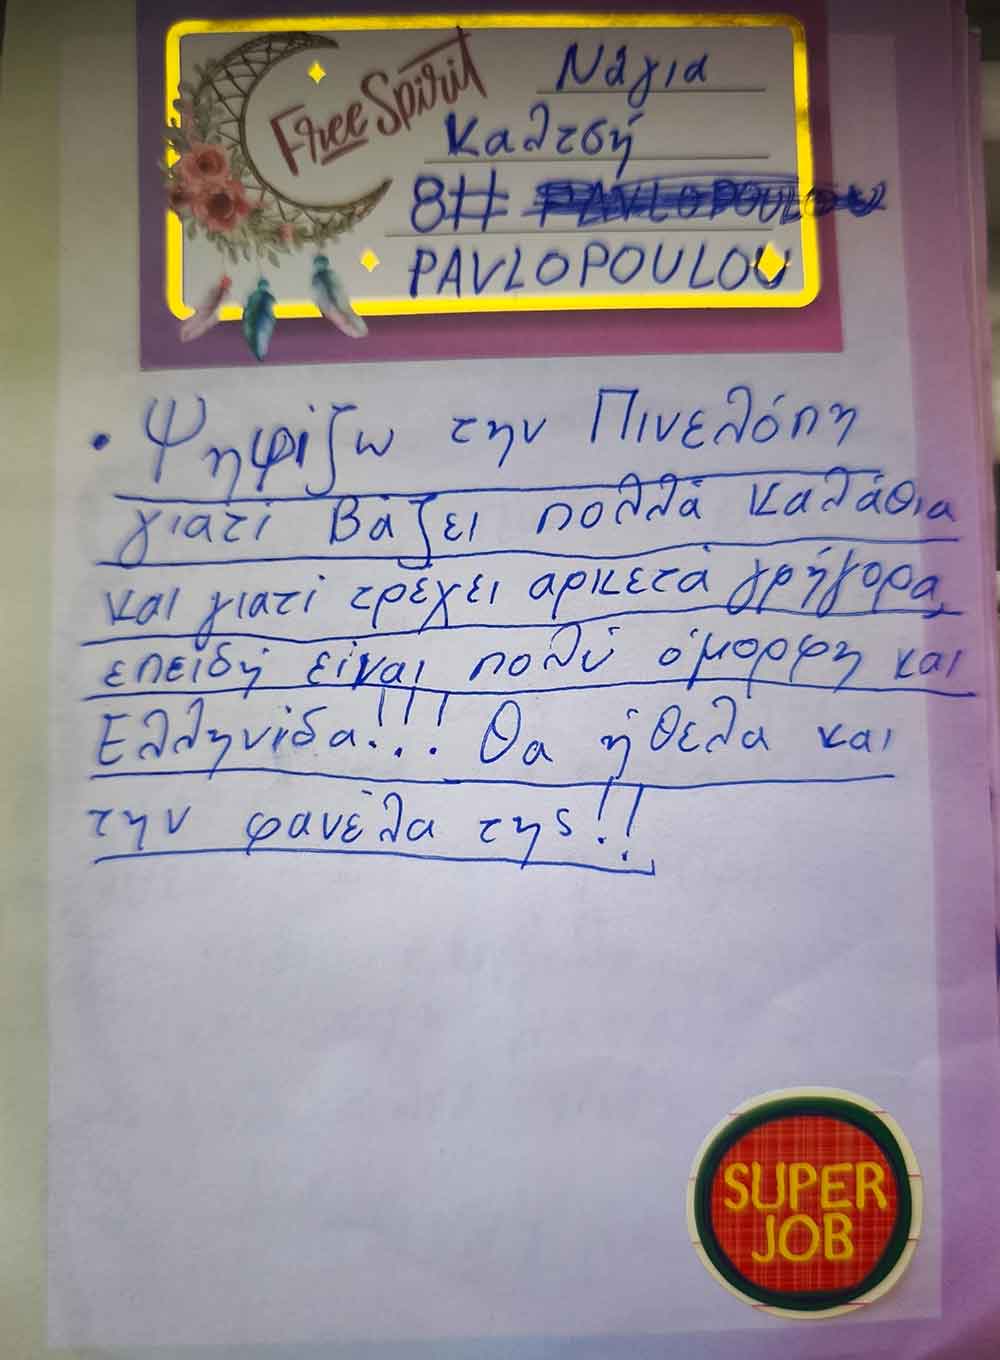 Free Spirit
Νάγια
Καλτσή
8# PAVLOPOULOU
PAVLOPOULOU
• Ψηφίζω την Πινελόπη
γιατί Βάζει πολλά καλάθια
και γιατί τρέχει αρκετά γρήγορα,
επειδή είναι πολύ όμορφη και
Ελληνίδα!!! Θα ήθελα και
την φανέλα της!!
SUPER
JOB